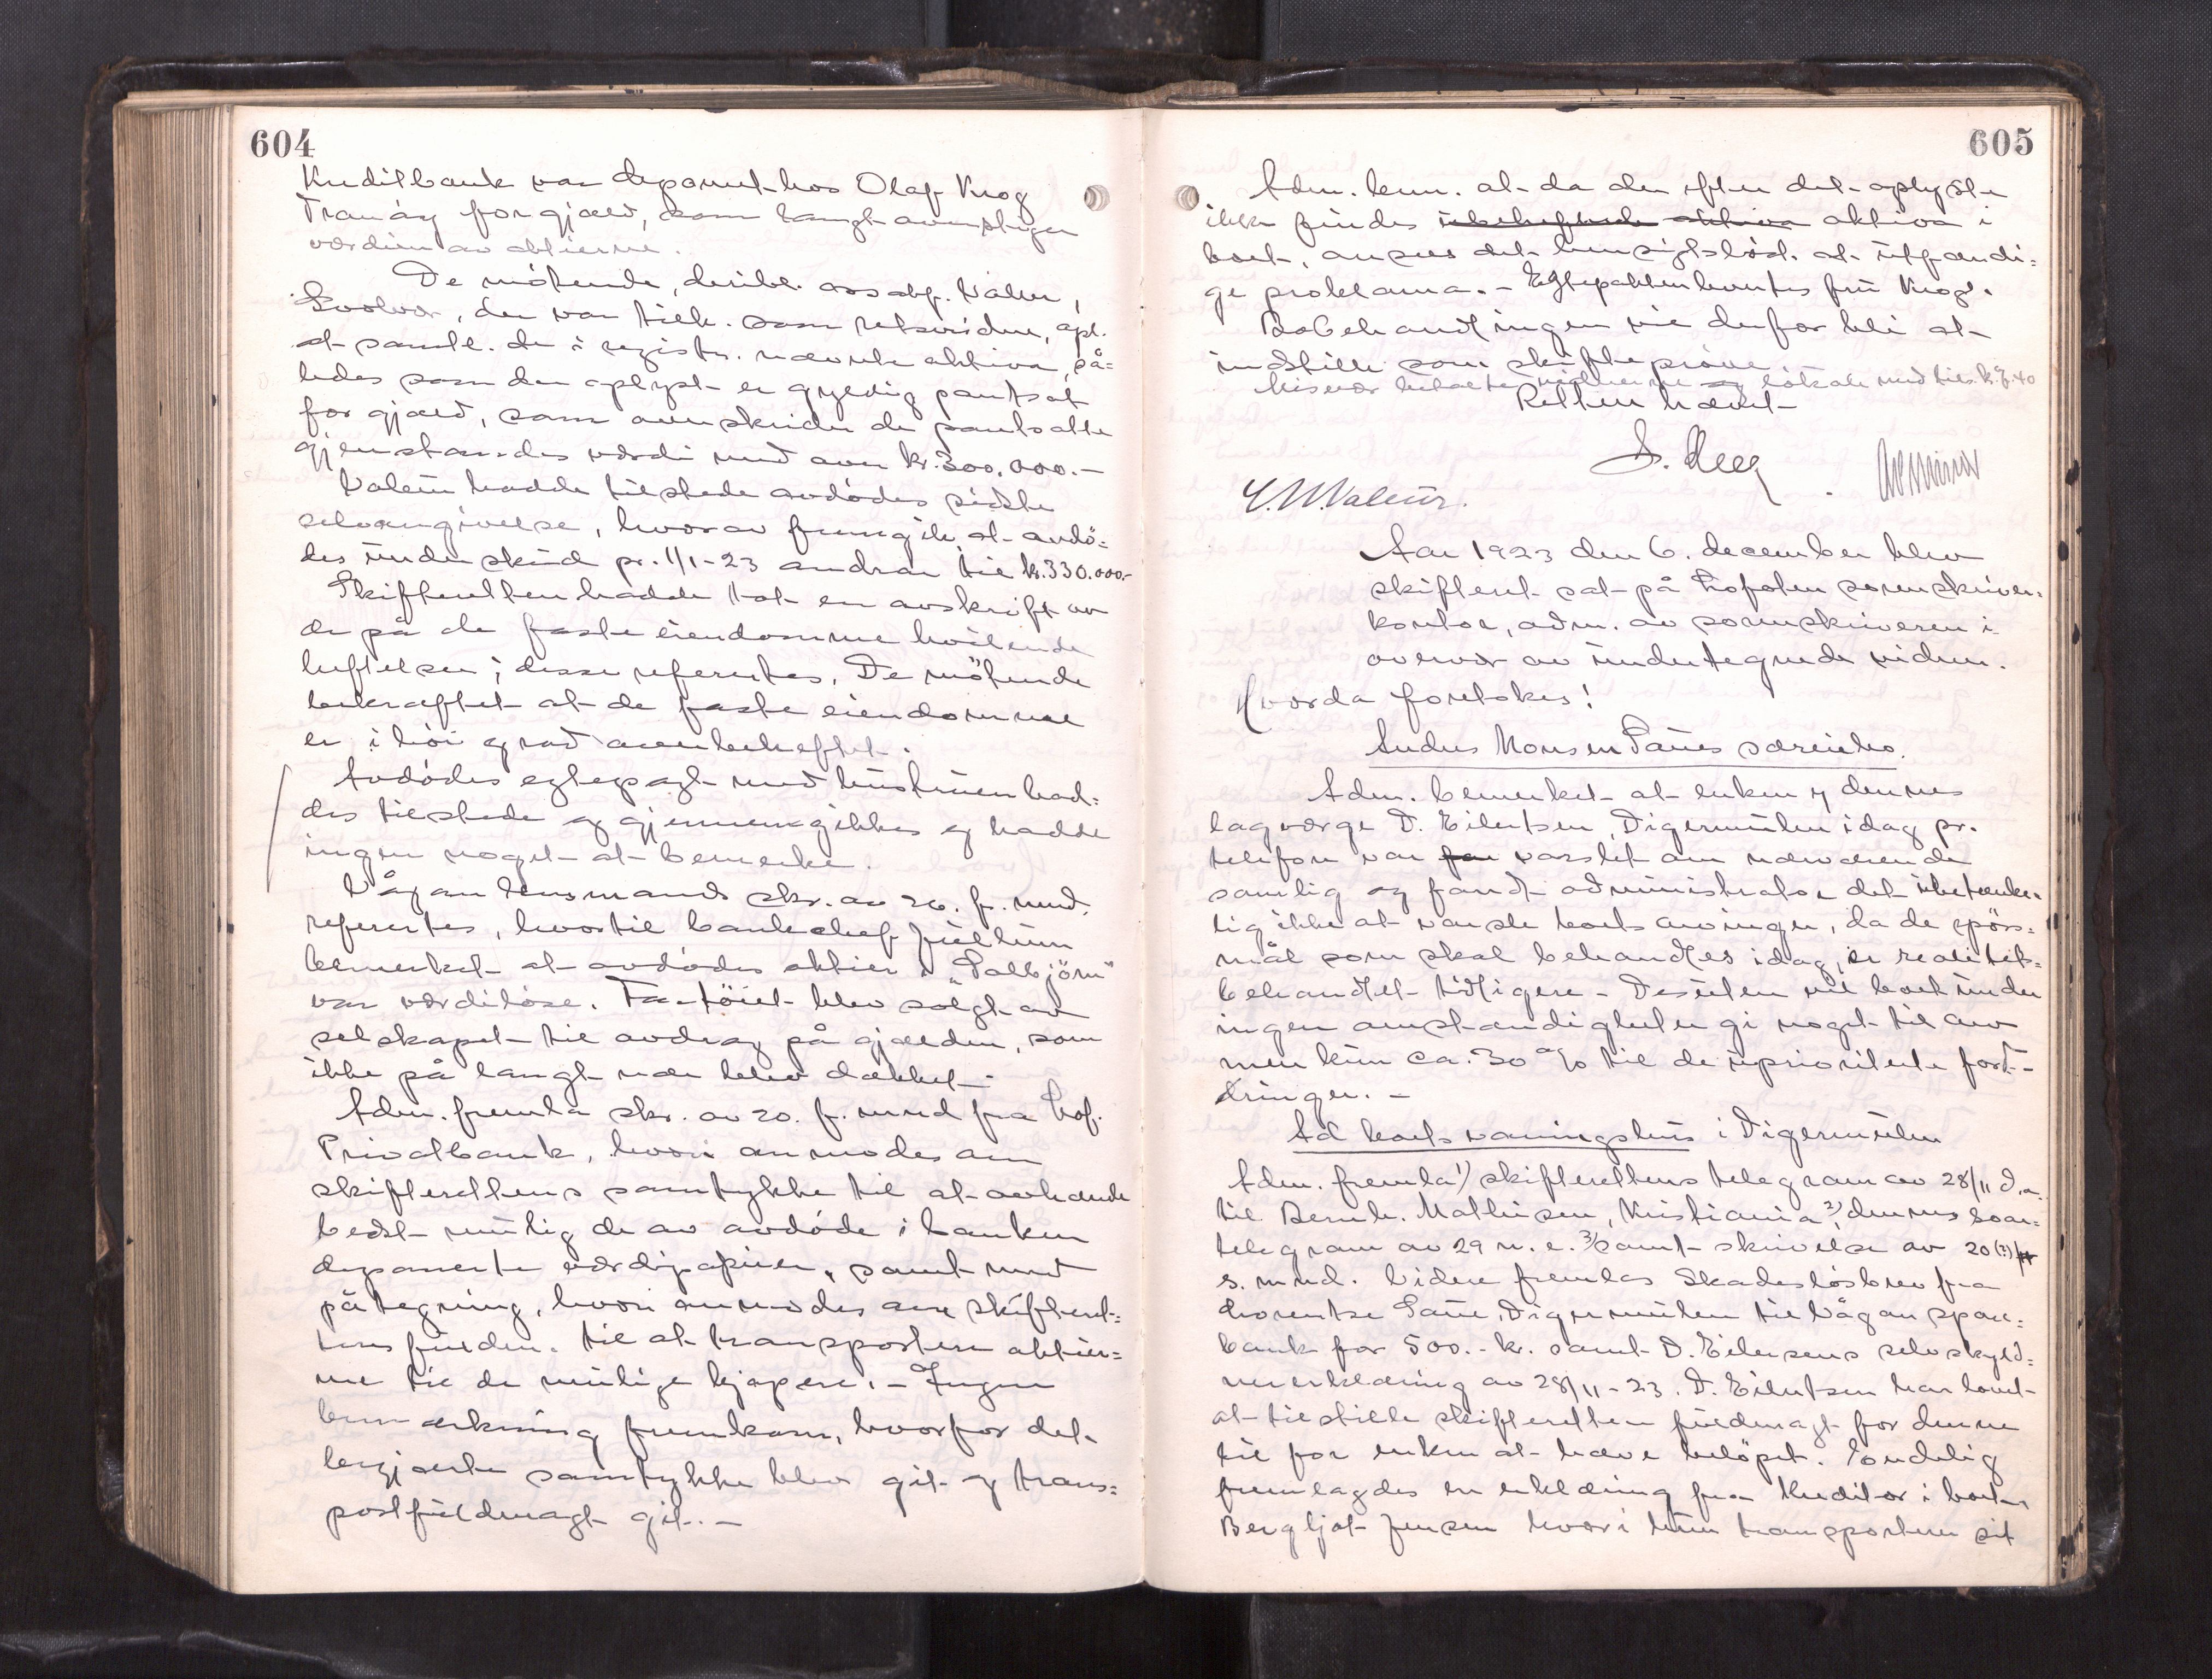 604
Kreditbank var deponert hos Olaf Krog
Tranöy for gjæld, som langt overstiger
værdien av aktierne.
De mötende, deribl. o.r.sakf. Valeur,
Svolvær, der var tilk. som retsvidne, opl.
at samtl. de i registr. nævnte aktiva, så=
ledes som der oplyst er gyldig pantsat
for gjæld, som overskrider de pantsatte
gjenstandes værdi med over kr. 300.000.-
Valeur hadde tilstede avdödes sidste
selvangivelse, hvorav fremgik at avdö=
des underskud pr. 1/1-23 androg til kr. 330.000.-
Skifteretten hadde tat en avskrift av
de på de faste eiendomme hvilende
heftelser; disse refertes. De mötende
bekræftet at de faste eiendomme
er i höi grad overbeheftet.
Avdödes egtepagt med hustruen had=
des tilstede og gjennemgikkes og hadde
ingen noget at bemerke.
Vågan lensmands skr. av 26. f. mnd.
refertes, hvortil bankchef Juellum
bemerket at avdödes aktier i "Solbjörn"
var værdilöse. Fartöiet blev solgt av
selskapet til avdrag på gjælden, som
ikke på langt nær blev dækket.
Adm. fremla skr. av 20. f. mnd fra Lof.
Privatbank, hvori anmodes om
skifterettens samtykke til at avhænde
bedst mulig de av avdöde i banken
deponerte værdipapirer, samt med
påtegning, hvori anmodes om skifteret=
tens fuldm. til at transportere aktier=
ne til de mulige kjöpere. - Ingen
bemerkning fremkom, hvorfor det
begjærte samtykke blev git og trans=
portfuldmagt git. -
605
Adm. bem. at da der efter det oplyste
ikke findes ubeheftede aktiva aktiva i
boet, ansees det hensigtslöst at utfærdi=
ge proklama. - Egtepakten hentes fru Krog.
Bobehandlingen vil derfor bli at
indstille som skifteprøve.
vidnerne og lokale med tils. kr. 7.40
Retten hævet
C. M. Valeur.
Aar 1923 den 6. december blev
skifteret sat på Lofoten sorenskriver=
kontor, adm. av sorenskriveren i
overvær av undertegnede vidner.
Hvorda foretokes!
Anders Monsen Saues særeiebo.
Adm. bemerket at enken og dennes
lagværge D. Eilertsen, Digermulen idag pr.
telefon var for varslet om nærværende
samling og fandt administrator det ubetænke=
lig ikke at varsle boets arvinger, da de spörs=
mål som skal behandles idag, er realitets=
behandlet tidligere. Desuten vil boet under
ingen omstændigheter gi noget til arv
men kun ca. 30 % til de uprioriterte ford=
dringer. -
Ad boets vaaningshus i Digermulen
Adm. fremla 1) skifterettens telegram av 28/11 d.a.
til Bernh. Mathisen, Kristiania 2), dennes svar=
telegram av 29 n. e. 3) samt skrivelse av 20(?)
s. mnd. Videre fremlas Skadeslösbrev fra
Lorentse Saue, Digermulen til Vågan spare=
bank for 500.- kr. samt D. Eilertsens selvskyld=
nererklæring av 28/11-23. D. Eilertsen har lovet
at tilstille skifteretten fuldmagt for denne
til for enken at hæve belöpet. Endelig
fremlagdes en erklæring fra kreditor i boet
Bergljot Jensen hvori hun transporterer sit